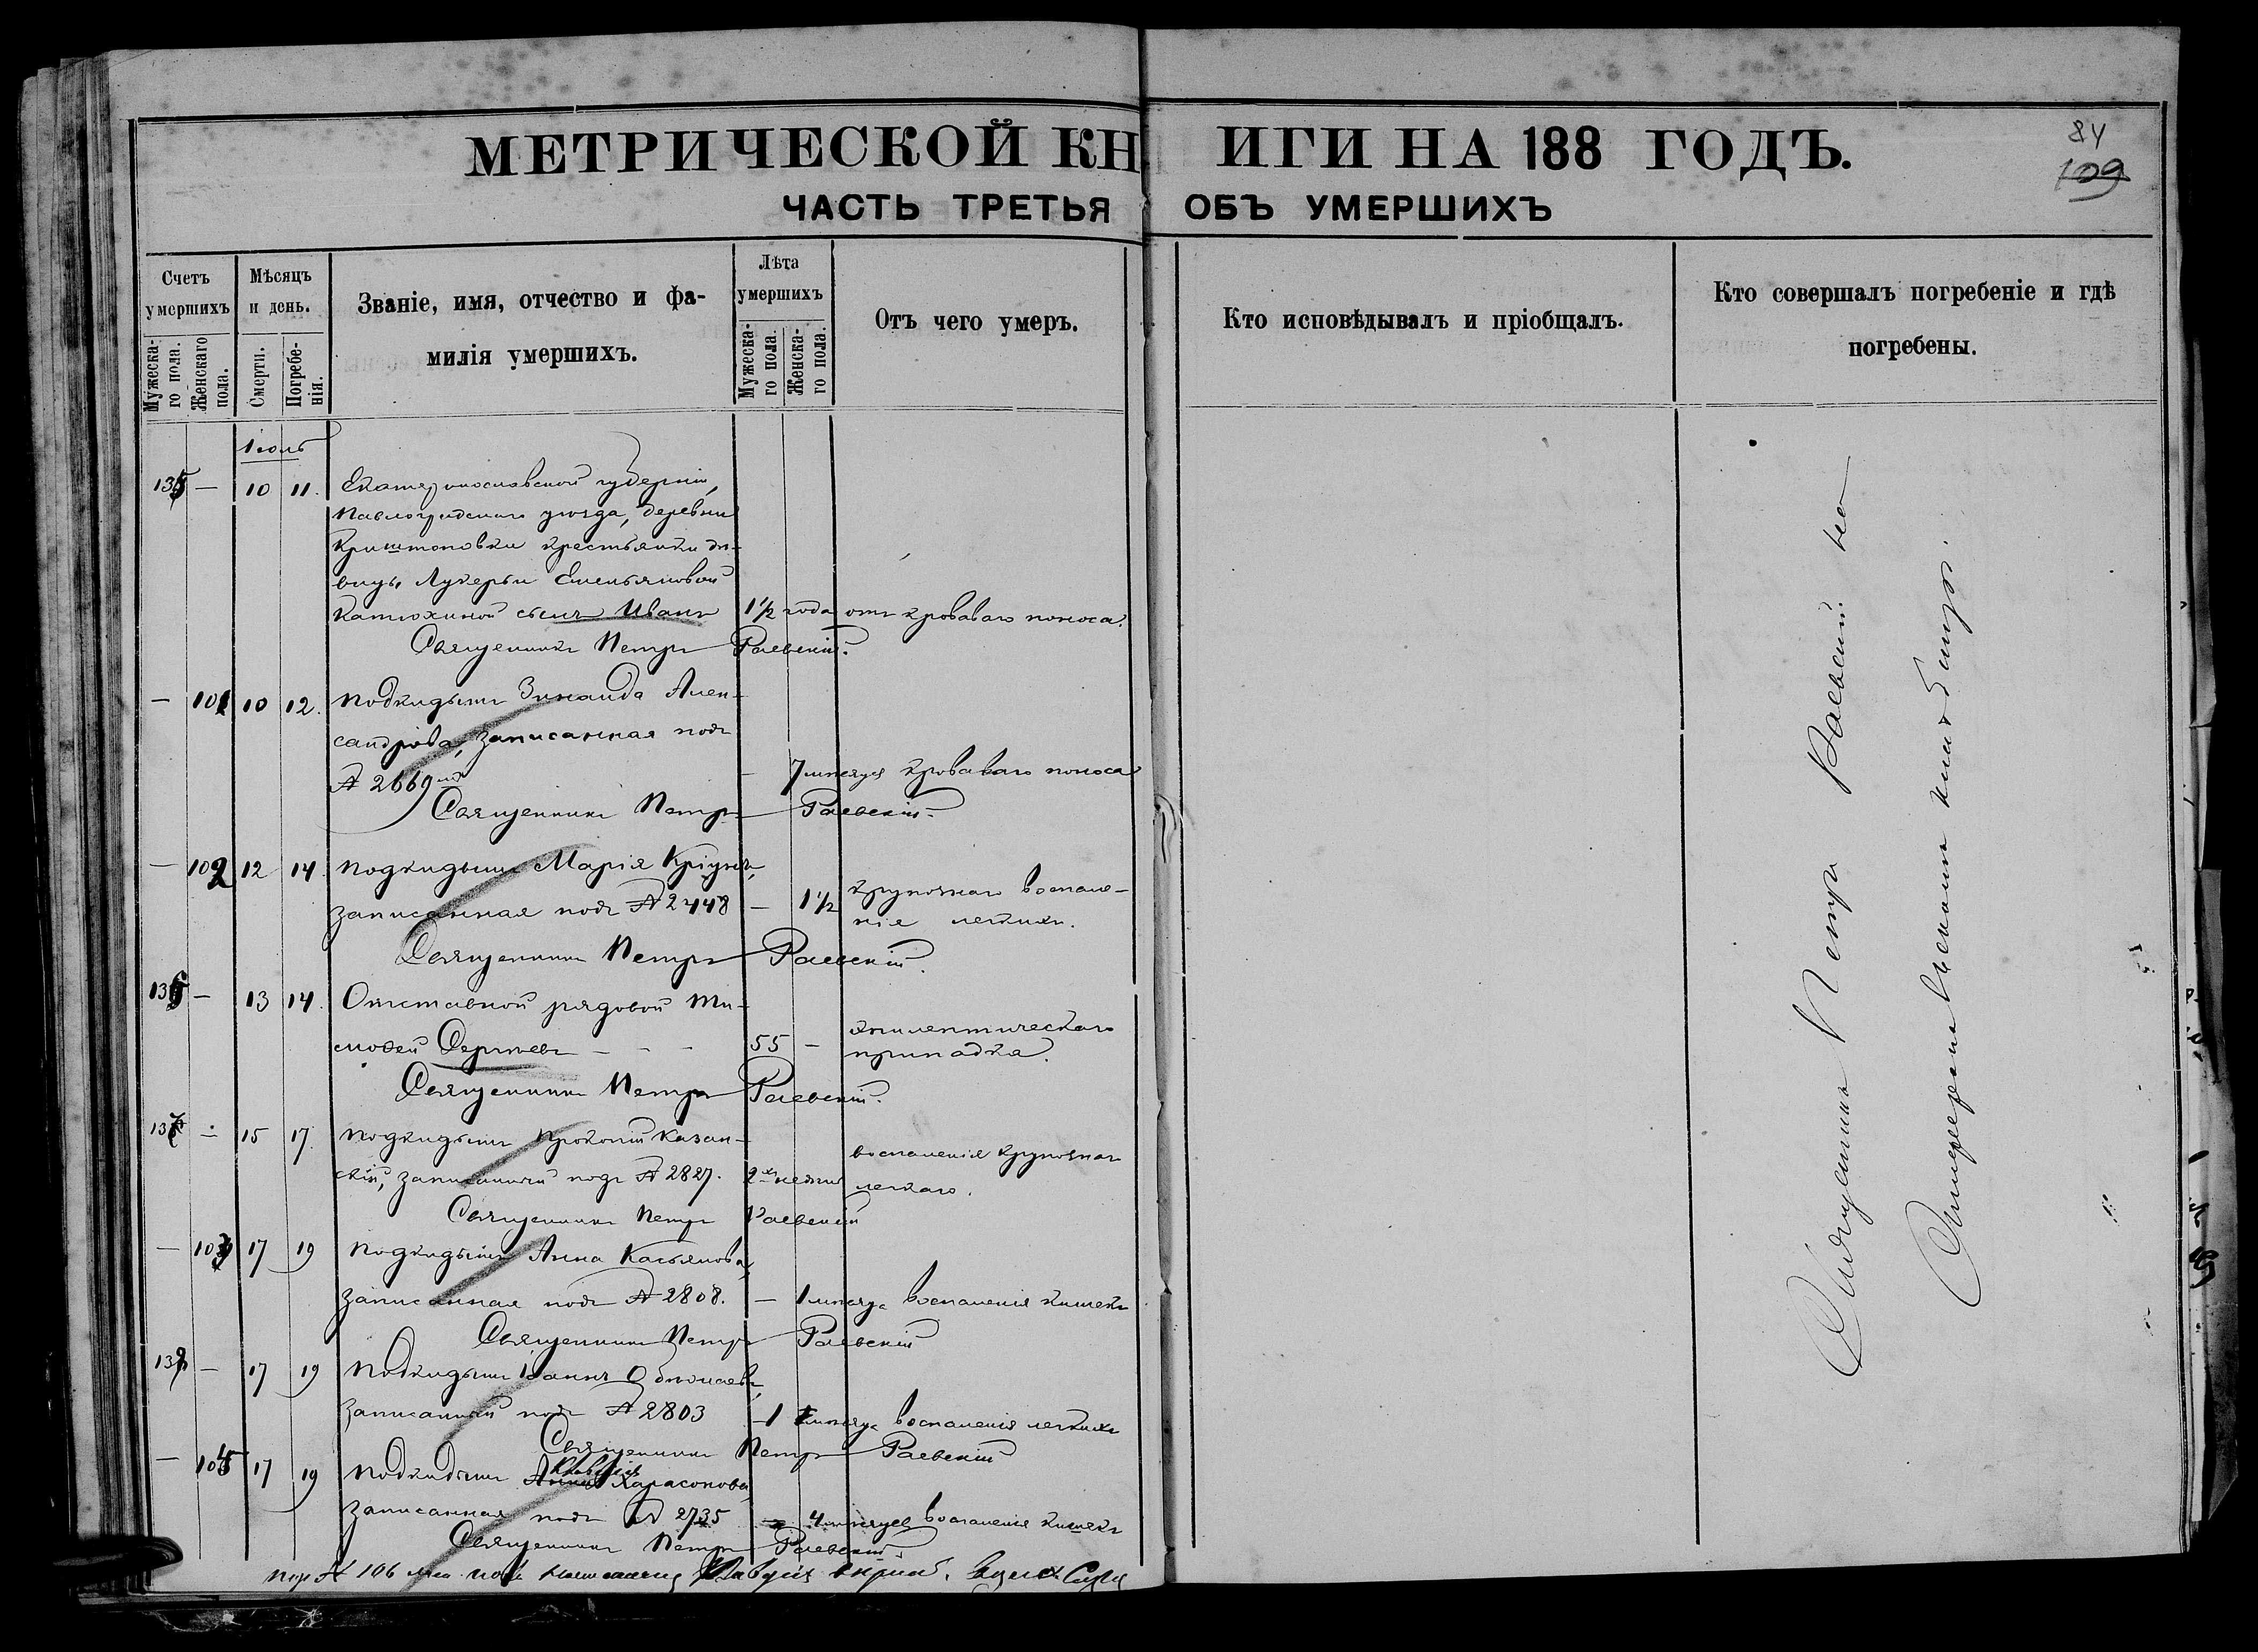 МЕТРИЧЕСКОЙ КНИГИ НА 188 ГОДЪ.
84
109
ЧАСТЬ ТРЕТЬЯ ОБЪ УМЕРШИХЪ
Счетъ умершихъ
Мужеска-го пола.
Женскаго пола.
Мѣсяцъ и день.
Смерти.
Погребе-нія.
Званіе, имя, отчество и фа-
милія умершихъ.
Лѣта умершихъ
Мужеска-го пола.
Женска-го пола.
Отъ чего умеръ.
Кто исповѣдывалъ и пріобщалъ.
Кто совершалъ погребеніе и гдѣ
погребены.
Іюль
135 — 10 11. Екатеринославской губерніи,
Павлоградскаго уѣзда, деревни
Криштоповки крестьянки дѣ-
вицы Лукерьи Емельяновой
Катюхиной сынъ Иванъ 1 1/2 года отъ кроваваго поноса.
Священникъ Петръ Раевскій.
— 101 10 12. Подкидышъ Зинаида Алек-
сандрова, записанная подъ
№ 2669 — 7 мѣсяц кроваваго поноса
Священникъ Петръ Раевскій.
— 102 12 14. Подкидышъ Марія
записанная подъ № 2448 — 1 1/2 крупознаго воспале-
нія легкихъ.
Священникъ Петръ Раевскій.
136 — 13 14. Отставной рядовой Ти-
моѳей Сергѣевъ — — — 55 — эпилептическаго
припадка.
Священникъ Петръ Раевскій.
137 — 15 17. Подкидышъ Прокопій Казан-
скій, записанный подъ № 2827. 2хъ недѣль воспаленія крупознаго
легкаго.
Священникъ Петръ Раевскій
— 103 17 19 Подкидышъ Анна Касьянова,
записанная подъ № 2808. — 1 мѣсяца воспаленія кишекъ
Священникъ Петръ Раевскій
138 — 17 19 Подкидышъ Іоаннъ
записанный подъ № 2803 — 1 мѣсяца воспаленія легкихъ
Священникъ Петръ Раевскій
— 105 17 19 Подкидышъ Клавдія
записанная подъ № 2735 — 4 мѣсяцев воспаленія кишекъ
Священникъ Петръ Раевскій.
под № 106 Клавдія
Священникъ Петръ Раевскій на